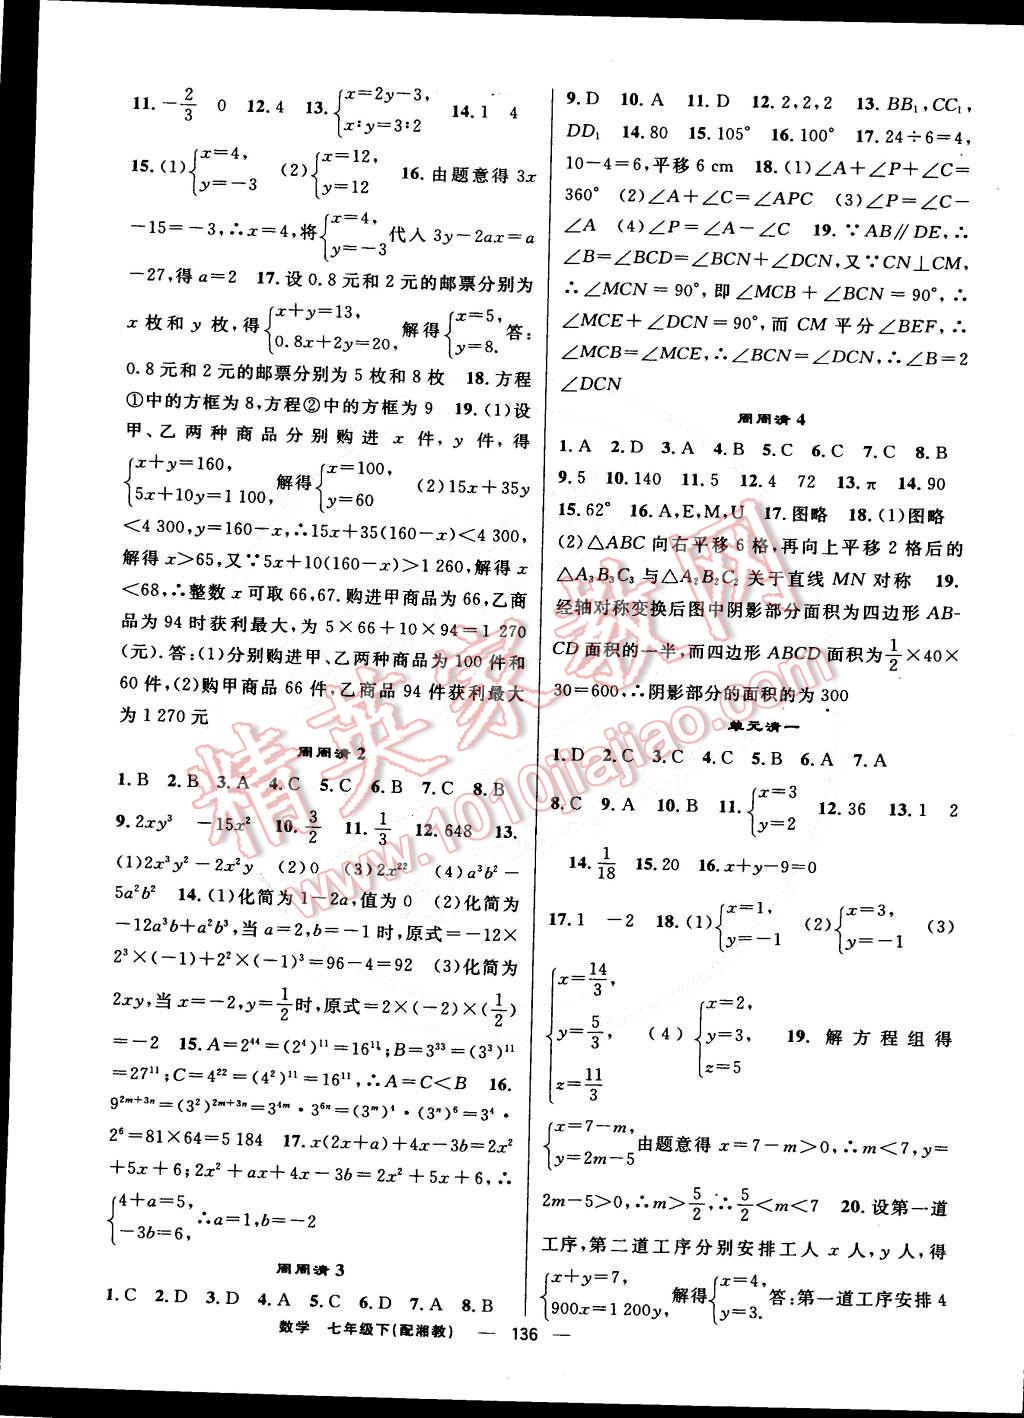 11.－2/3　0　12.4　13.{x=2y－3, x∶y=3∶2　14.1　4
15.(1){x=4, y=－3　(2){x=12, y=12　16.由题意得 3x
－15=－3,∴x=4,将{x=4, y=－3 代入 3y－2ax=a
－27,得 a=2　17.设 0.8 元和 2 元的邮票分别为
x 枚和 y 枚,得{x+y=13, 0.8x+2y=20, 解得{x=5, y=8. 答:
0.8 元和 2 元的邮票分别为 5 枚和 8 枚　18.方程
①中的方框为 8,方程②中的方框为 9　19.(1)设
甲、乙两种商品分别购进 x 件,y 件,得
{x+y=160, 5x+10y=1 100, 解得{x=100, y=60　(2)15x+35y
<4 300,y=160－x,∴15x+35(160－x)<4 300,
解得 x>65,又∵5x+10(160－x)>1 260,解得 x
<68,∴整数 x 可取 66,67.购进甲商品为 66,乙商
品为 94 时获利最大,为 5×66+10×94=1 270
(元).答:(1)分别购进甲、乙两种商品为 100 件和
60 件,(2)购甲商品 66 件,乙商品 94 件获利最大
为 1 270 元
周周清 2
1.B　2.B　3.A　4.C　5.C　6.B　7.C　8.B
9.2xy³　－15x²　10.3/2　11.1/3　12.648　13.
(1)2x³y²－2x²y　(2)0　(3)2x²²　(4)a³b²－
5a²b²　14.(1)化简为 1－2a,值为 0　(2)化简为
－12a³b+a²b³,当 a=2,b=－1 时,原式=－12×
2³×(－1)+2²×(－1)³=96－4=92　(3)化简为
2xy,当 x=－2,y=1/2时,原式=2×(－2)×(1/2)
=－2　15.A=2⁴⁴=(2⁴)¹¹=16¹¹;B=3³³=(3³)¹¹
=27¹¹;C=4²²=(4²)¹¹=16¹¹,∴A=C<B　16.
9²ᵐ⁺³ⁿ=(3²)²ᵐ⁺³ⁿ=3⁴ᵐ·3⁶ⁿ=(3ᵐ)⁴·(3ⁿ)⁶=3⁴·
2⁶=81×64=5 184　17.x(2x+a)+4x－3b=2x²
+5x+6;2x²+ax+4x－3b=2x²+5x+6,∴
{4+a=5, －3b=6, ∴a=1,b=－2
周周清 3
1.C　2.D　3.D　4.A　5.C　6.D　7.A　8.B
9.D　10.A　11.D　12.2,2,2　13.BB₁,CC₁,
DD₁　14.80　15.105°　16.100°　17.24÷6=4,
10－4=6,平移 6 cm　18.(1)∠A+∠P+∠C=
360°　(2)∠A+∠C=∠APC　(3)∠P=∠C－
∠A　(4)∠P=∠A－∠C　19.∵AB∥DE,∴
∠B=∠BCD=∠BCN+∠DCN,又∵CN⊥CM,
∴∠MCN=90°,即∠MCB+∠BCN=90°,∴
∠MCE+∠DCN=90°,而 CM 平分∠BEF,∴
∠MCB=∠MCE,∴∠BCN=∠DCN,∴∠B=2
∠DCN
周周清 4
1.A　2.D　3.A　4.B　5.C　6.C　7.C　8.B
9.5　10.140　11.5　12.4　72　13.π　14.90
15.62°　16.A,E,M,U　17.图略　18.(1)图略
(2)△ABC 向右平移 6 格,再向上平移 2 格后的
△A₃B₃C₃ 与△A₂B₂C₂ 关于直线 MN 对称　19.
经轴对称变换后图中阴影部分面积为四边形 AB-
CD 面积的一半,而四边形 ABCD 面积为1/2×40×
30=600,∴阴影部分的面积的为 300
单元清一
1.D　2.C　3.C　4.C　5.B　6.A　7.A
8.C　9.A　10.B　11.{x=3 y=2　12.36　13.1　2
14.1/18　15.20　16.x+y－9=0
17.1　－2　18.(1){x=1, y=－1　(2){x=3, y=－1　(3)
{x=14/3, y=5/3, z=11/3　(4){x=2, y=3, z=5　19.解方程组得
{x=7－m, y=2m－5 由题意得 x=7－m>0,∴m<7,y=
2m－5>0,∴m>5/2,∴5/2<m<7　20.设第一道
工序,第二道工序分别安排工人 x 人,y 人,得
{x+y=7, 900x=1 200y, 解得{x=4, y=3. 答:第一道工序安排 4
数学　七年级下(配湘教)　— 136 —
精英家教网
www.1010jiajiao.com